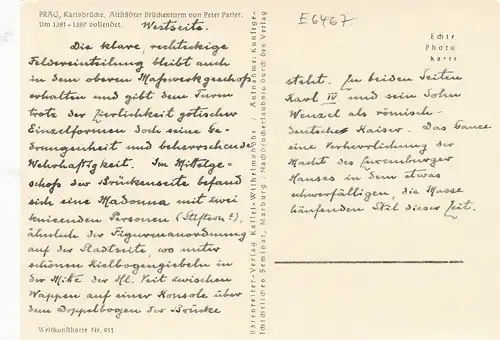 PRAG, Karlsbrücke. Altstädter Brückenturm von Peter Parler.
Um 1381 - 1389 vollendet.
Westseite.
Die klare, rechteckige
Feldereinteilung bleibt auch
in dem oberen Masswerkgeschoß
erhalten und gibt dem Turm
trotz der Zierlichkeit gotischer
Einzelformen doch seine Ge-
drungenheit und beherrschende
Wehrhaftigkeit. Im Mittelge-
schoß der Brückenseite befand
sich eine Madonna mit zwei
knieenden Personen (Stiftern?),
ähnlich der Figurenanordnung
auf der Stadtseite, wo unter
schönen Kielbogengiebeln in
der Mitte der Hl. Veit zwischen
Wappen auf einer Konsole über
dem Doppelbogen der Brücke
Weltkunstkarte Nr. 911
Bärenreiter-Verlag Kassel-Wilhelmshöhe / Aufnahme: Kunstge-
schichtliches Seminar, Marburg / Nachdruckerlaubnis durch den Verlag
E6467
Echte
Photo
karte
steht. Zu beiden Seiten
Karl IV. und sein Sohn
Wenzel als römisch-
deutscher Kaiser. Das Ganze
eine Verherrlichung der
Macht des Luxemburger
Hauses in dem etwas
schwerfälligen, die Masse
häufenden Stil dieser Zeit.